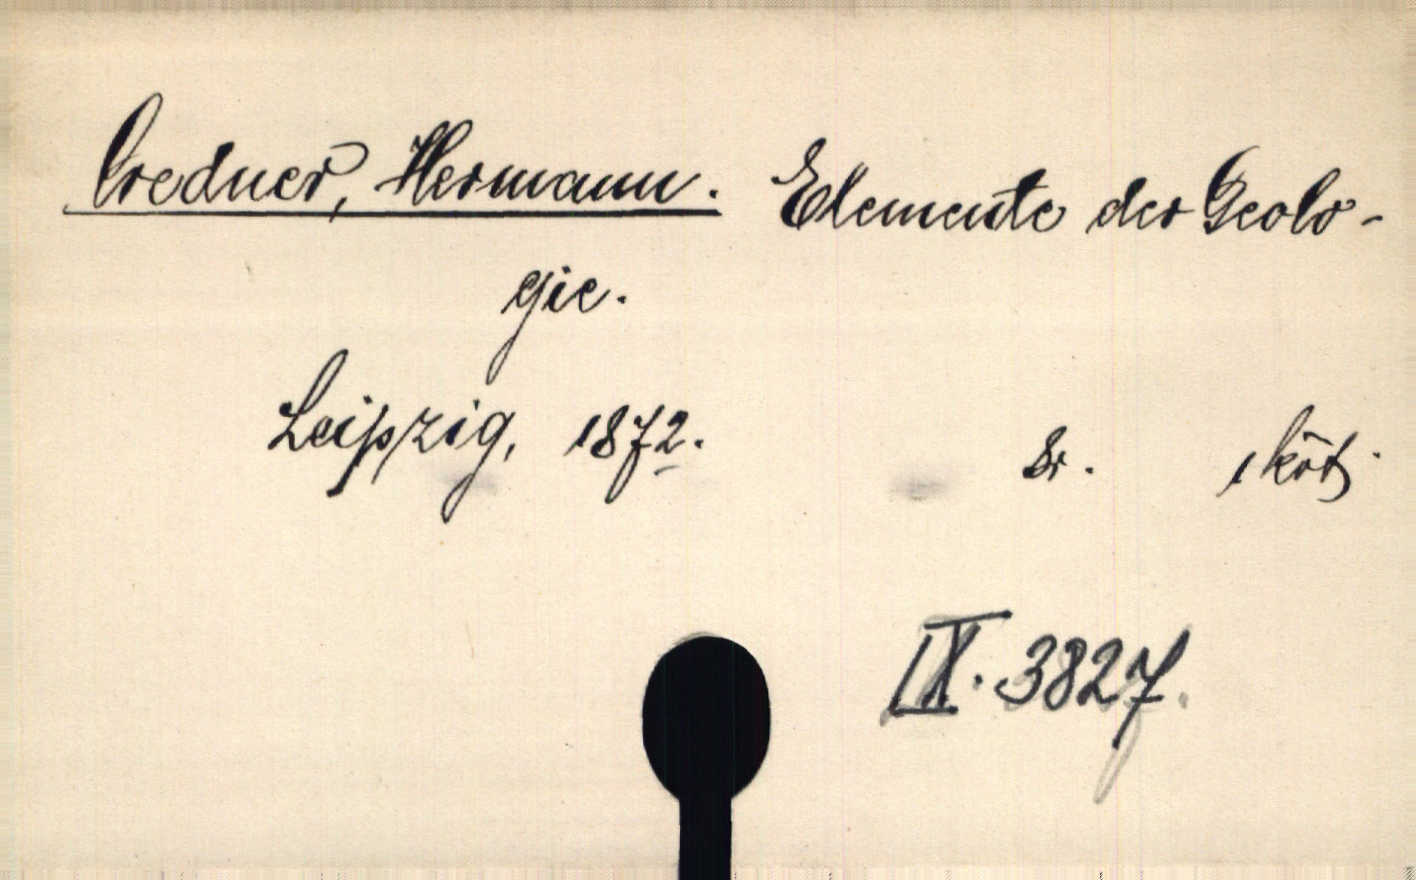 Credner, Hermann. Elemente der Geolo-
gie.
Leipzig, 1872. 8r. 1 köt.
IX. 3827.